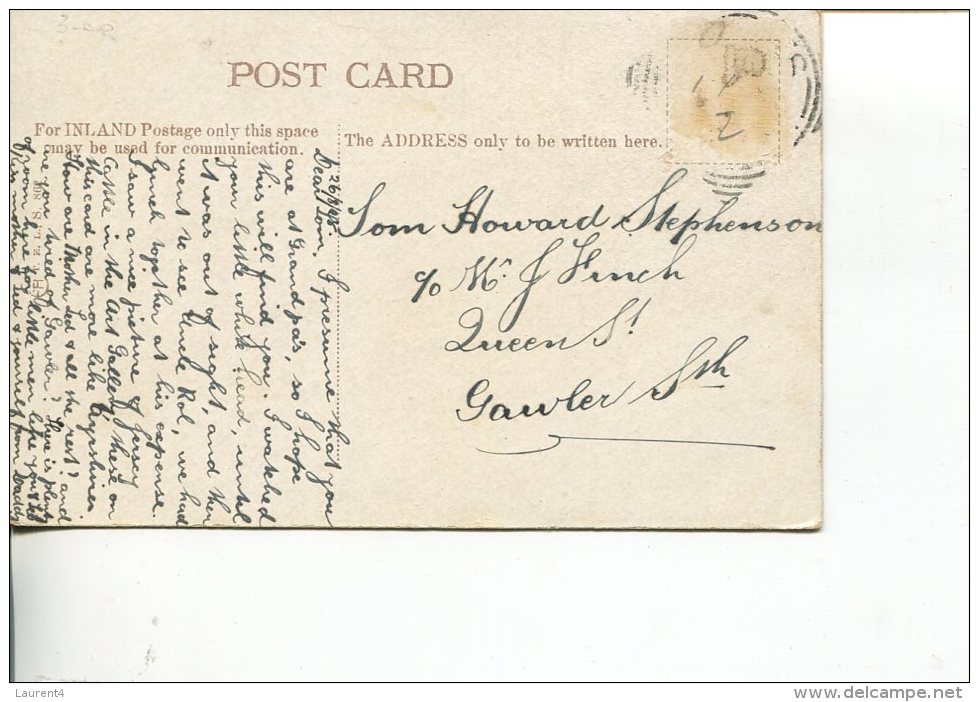 POST CARD
For INLAND Postage only this space
may be used for communication.
The ADDRESS only to be written here.
Tom Howard Stephenson
c/o Mr J Finch
Queen St
Gawler Sth
26/8/08
Dear Tom, I presume that you
are at Grandpa's, so I hope
this will find you. I watched
your little white head, until
it was out of sight, and then
went to see Uncle Rol, we had
lunch together at his expense.
I saw a nice picture of Jersey
Cattle in the Art Gallery, these on
this card are more like Ayrshires.
How are Mother Ted & all the rest? and
are you tired of Gawler? There is plenty
of room here for little men like you & Ted
Kiss mother & Ted & yourself from Daddy
Laurent4
www.delcampe.net